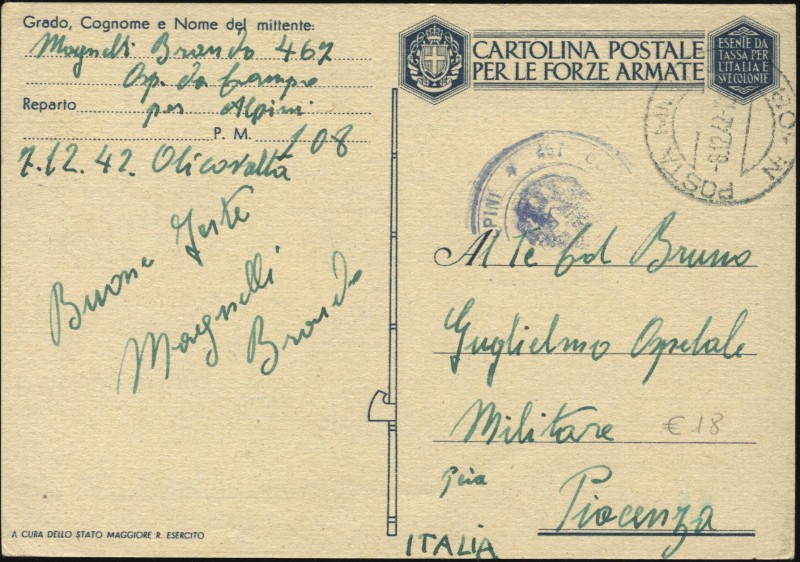 Grado, Cognome e Nome del mittente:
Magnelli Brando 467
Osp. da Campo
Reparto per Alpini
P. M. 108
7.12.42. Olicovatta
Buone feste
Magnelli
Brando
A CURA DELLO STATO MAGGIORE R. ESERCITO
CARTOLINA POSTALE
PER LE FORZE ARMATE
ESENTE DA
TASSA PER
L'ITALIA E
SUE COLONIE
POSTA
-8.12.42
467
PINI
Al Te Col Bruno
Guglielmo Ospedale
Militare
€ 18
Piacenza
ITALIA